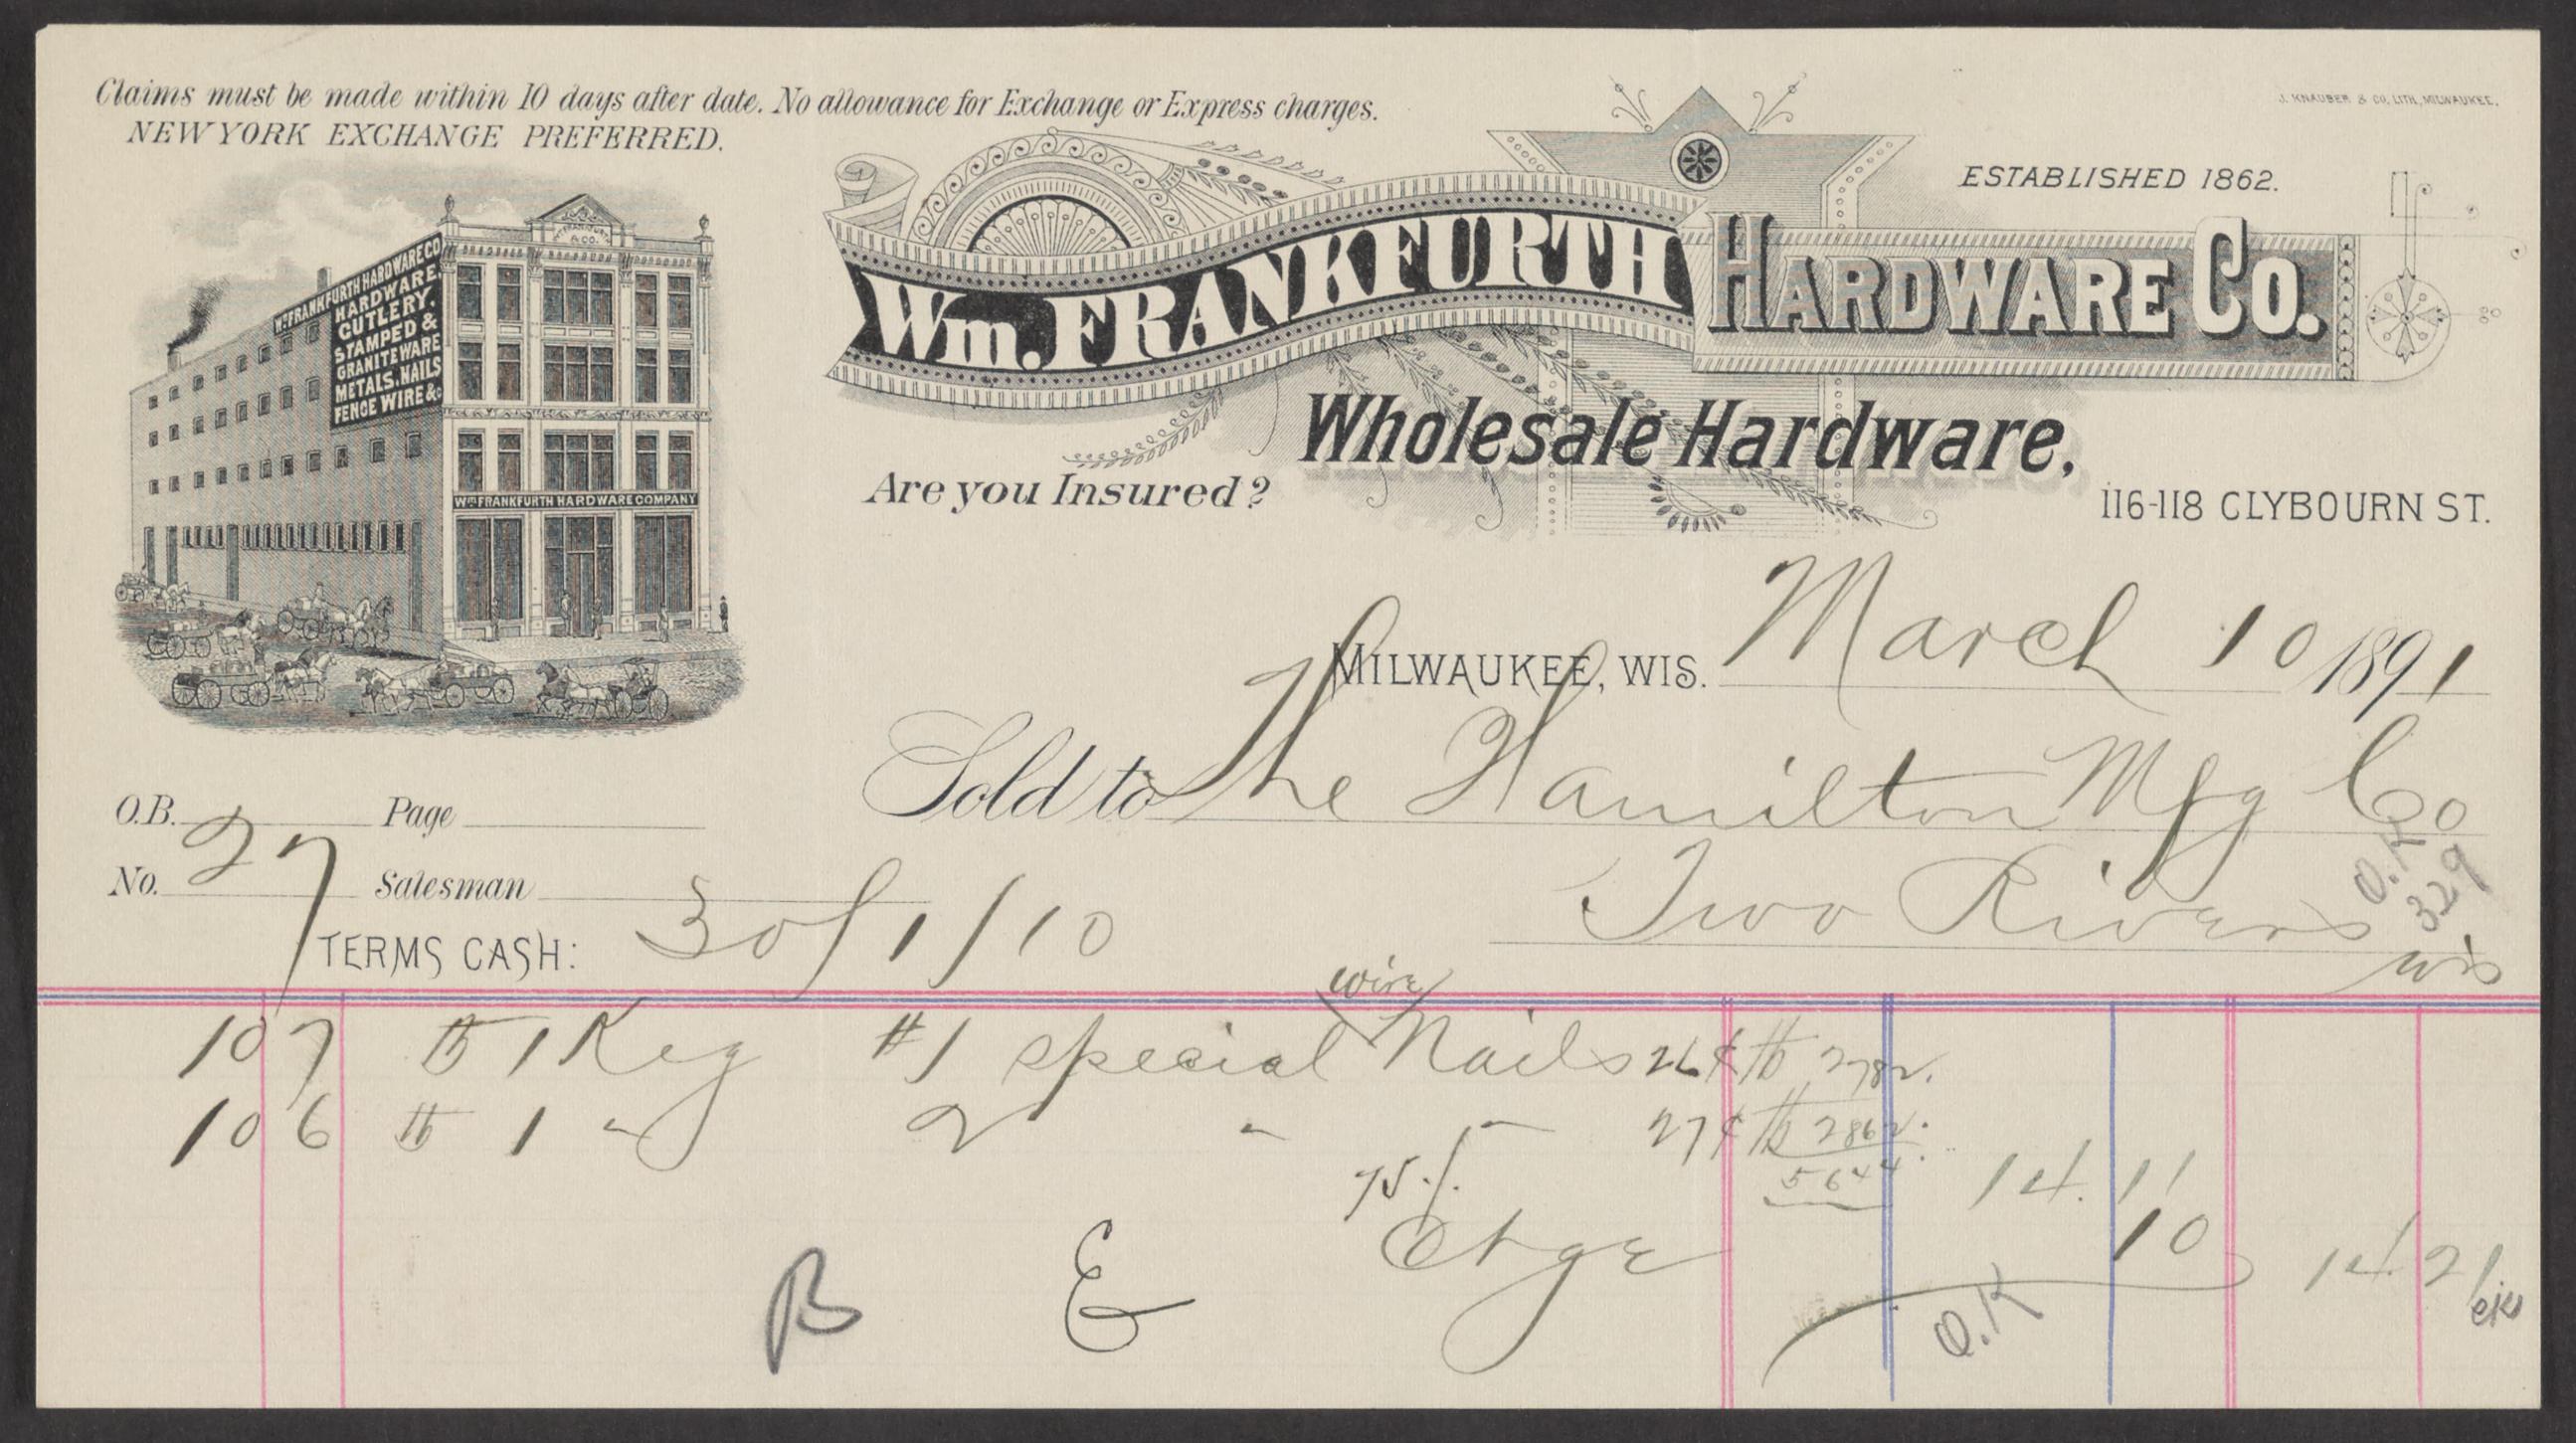 Claims must be made within 10 days after date. No allowance for Exchange or Express charges.
NEW YORK EXCHANGE PREFERRED.
J. KNAUBER & CO. LITH. MILWAUKEE.
ESTABLISHED 1862.
Wm. FRANKFURTH HARDWARE CO.
Wholesale Hardware,
Are you Insured?
116-118 CLYBOURN ST.
Wm FRANKFURTH & CO.
Wm FRANKFURTH HARDWARE CO
HARDWARE,
CUTLERY,
STAMPED &
GRANITEWARE
METALS, NAILS
FENCE WIRE &c
Wm FRANKFURTH HARDWARE COMPANY
MILWAUKEE, WIS. March 10 1891
Sold to The Hamilton Mfg Co
O.B. Page
Two Rivers
Wis
O.K
329
No. 27 Salesman
TERMS CASH: 30/1/10
wire
107 lb 1 Keg #1 special Nails 26¢ lb 2782.
106 lb 1 " 2 " " 27¢ lb 2862.
5644.
75 % 14.11
Chge 10
14.21
B E O.K